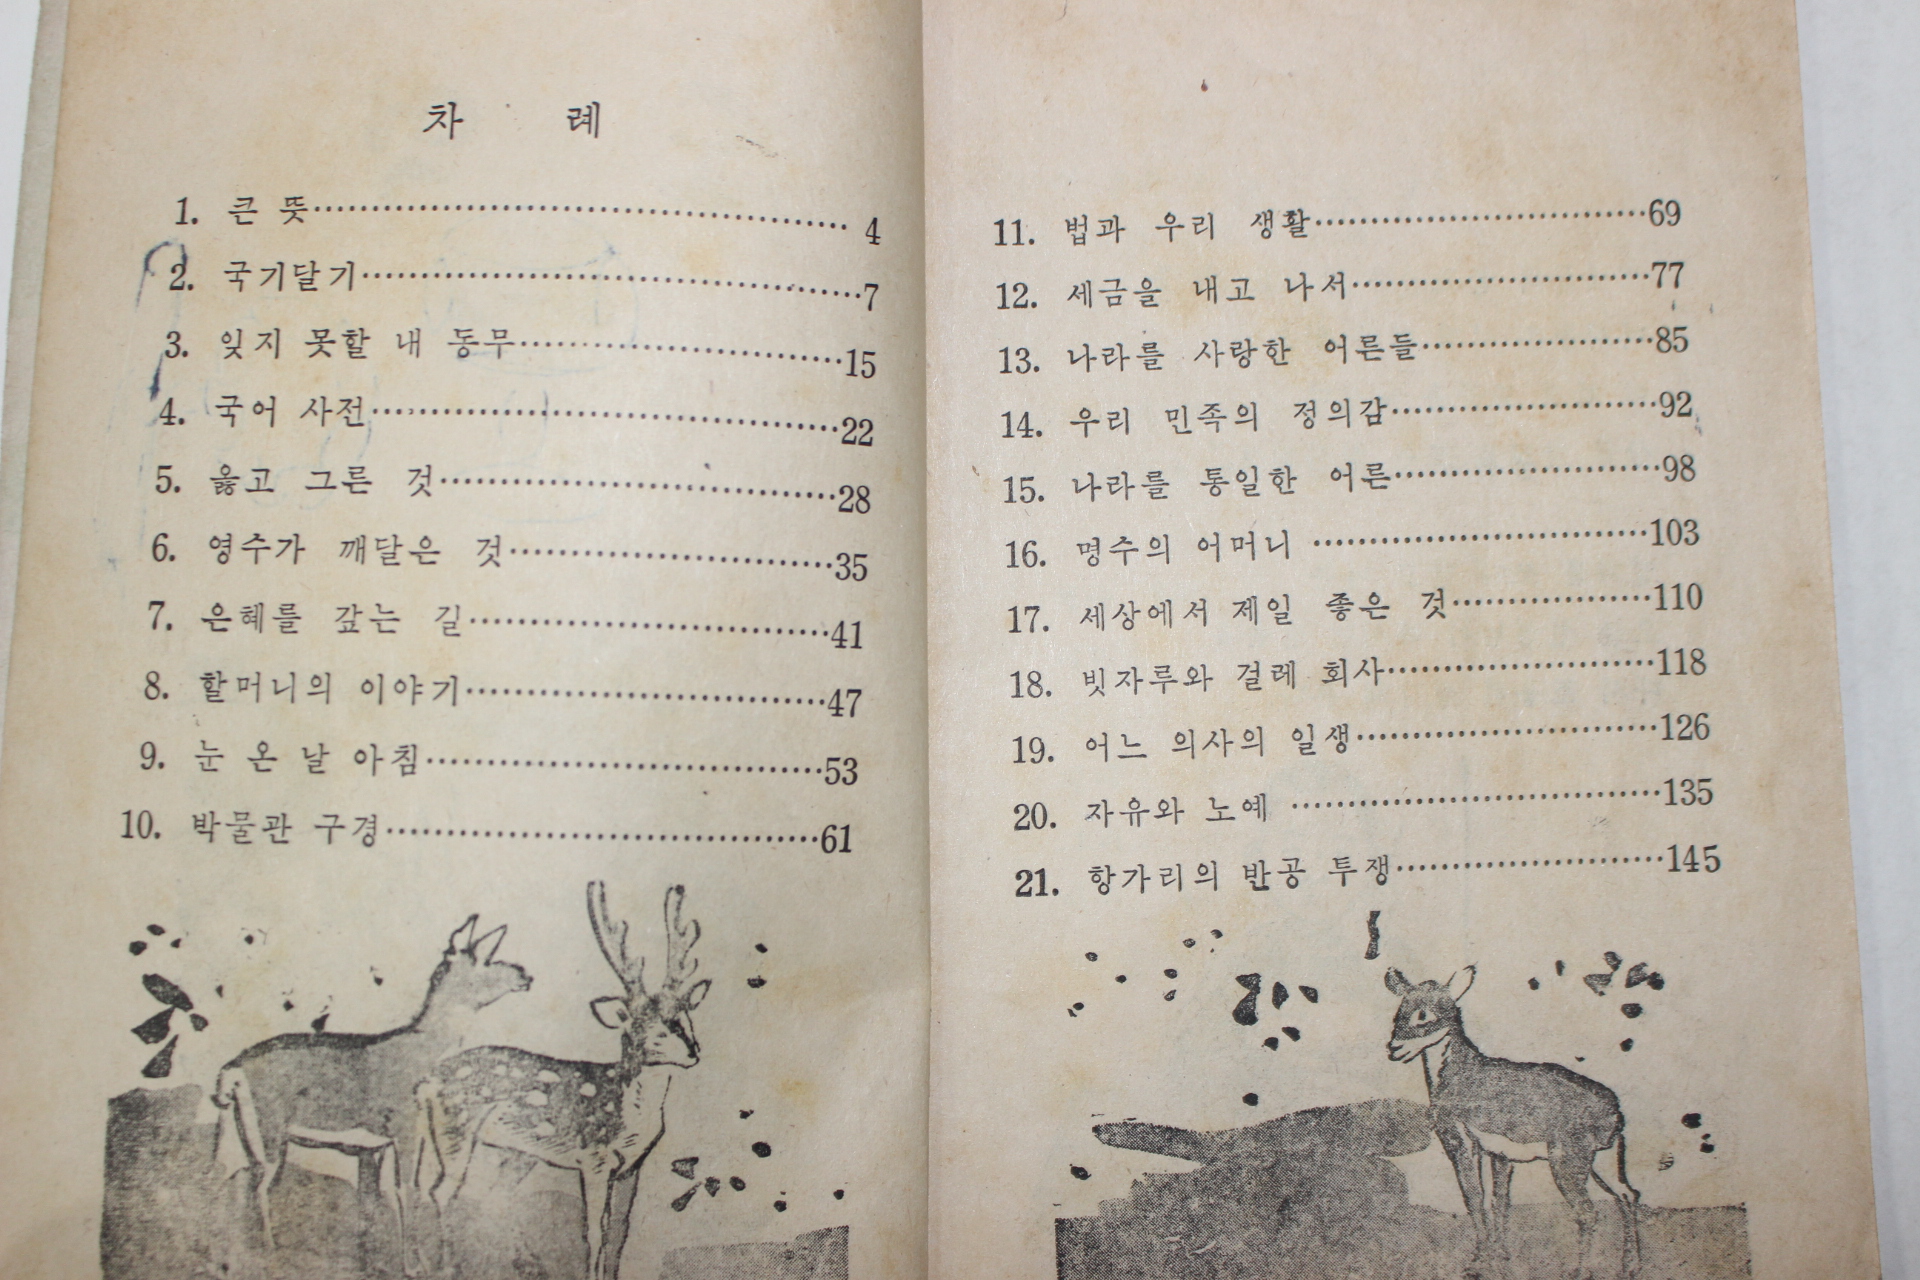 차 례
1. 큰 뜻 4
2. 국기달기 7
3. 잊지 못할 내 동무 15
4. 국어 사전 22
5. 옳고 그른 것 28
6. 영수가 깨달은 것 35
7. 은혜를 갚는 길 41
8. 할머니의 이야기 47
9. 눈 온 날 아침 53
10. 박물관 구경 61
11. 법과 우리 생활 69
12. 세금을 내고 나서 77
13. 나라를 사랑한 어른들 85
14. 우리 민족의 정의감 92
15. 나라를 통일한 어른 98
16. 명수의 어머니 103
17. 세상에서 제일 좋은 것 110
18. 빗자루와 걸레 회사 118
19. 어느 의사의 일생 126
20. 자유와 노예 135
21. 항가리의 반공 투쟁 145